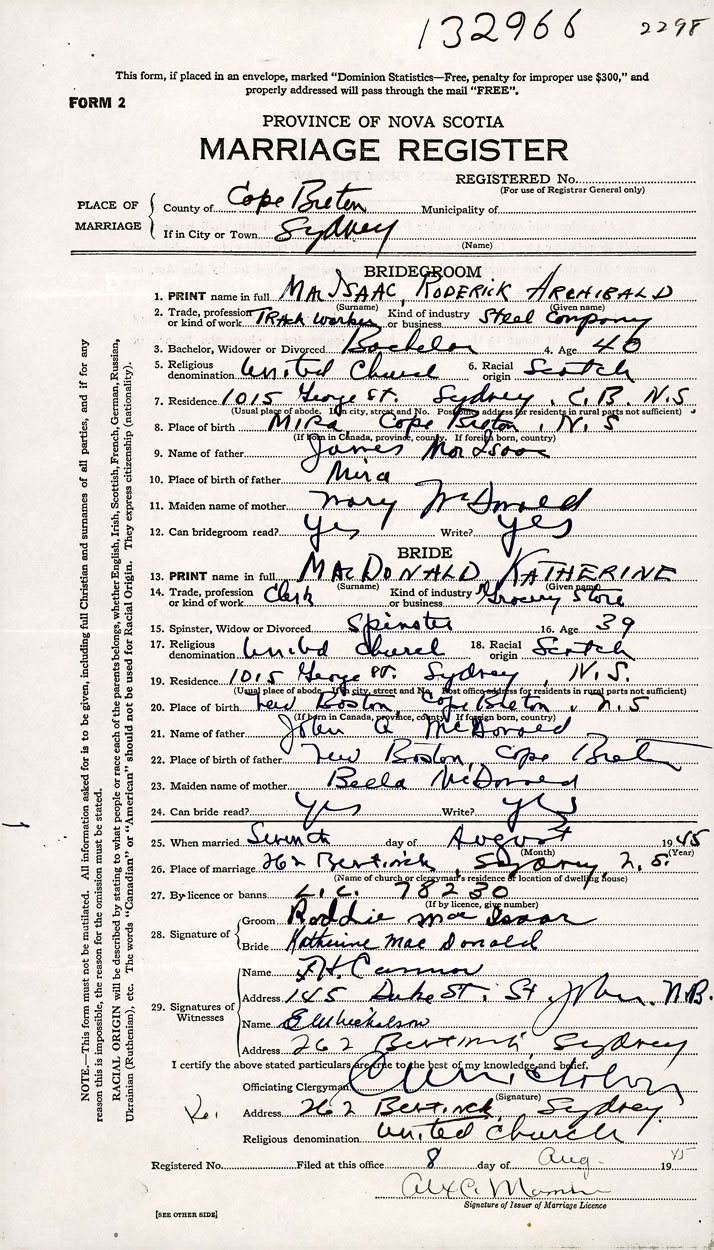 132966 2298
This form, if placed in an envelope, marked "Dominion Statistics—Free, penalty for improper use $300," and
properly addressed will pass through the mail "FREE".
FORM 2
PROVINCE OF NOVA SCOTIA
MARRIAGE REGISTER
REGISTERED No.
(For use of Registrar General only)
PLACE OF MARRIAGE
County of Cape Breton Municipality of
If in City or Town Sydney
(Name)
BRIDEGROOM
1. PRINT name in full MacIsaac, Roderick Archibald
(Surname) (Given name)
2. Trade, profession or kind of work Track Worker Kind of industry or business Steel Company
3. Bachelor, Widower or Divorced Bachelor 4. Age 40
5. Religious denomination United Church 6. Racial origin Scotch
7. Residence 1015 George St. Sydney, C.B. N.S
(Usual place of abode. If in city, street and No. Post office address for residents in rural parts not sufficient)
8. Place of birth Mira Cape Breton, N.S
(If born in Canada, province, county. If foreign born, country)
9. Name of father James MacIsaac
10. Place of birth of father Mira
11. Maiden name of mother Mary McDonald
12. Can bridegroom read? Yes Write? yes
BRIDE
13. PRINT name in full MacDonald Katherine
(Surname) (Given name)
14. Trade, profession or kind of work Clerk Kind of industry or business Grocery Store
15. Spinster, Widow or Divorced Spinster 16. Age 39
17. Religious denomination United Church 18. Racial origin Scotch
19. Residence 1015 George St. Sydney, N.S.
(Usual place of abode. If in city, street and No. Post office address for residents in rural parts not sufficient)
20. Place of birth New Boston, Cape Breton, N.S
(If born in Canada, province, county. If foreign born, country)
21. Name of father John A McDonald
22. Place of birth of father New Boston, Cape Breton
23. Maiden name of mother Bella McDonald
24. Can bride read? Yes Write? yes
25. When married Seventh day of August 1945
(Month) (Year)
26. Place of marriage 262 Bentinck, Sydney, N.S.
(Name of church or clergyman's residence or location of dwelling house)
27. By licence or banns Lic. 78230
(If by licence, give number)
28. Signature of
Groom Roddie MacIsaac
Bride Katherine MacDonald
29. Signatures of Witnesses
Name
Address 145 Duke St. St John. N.B.
Name
Address 262 Bentinck Sydney
I certify the above stated particulars are true to the best of my knowledge and belief.
Officiating Clergyman
(Signature)
Address 262 Bentinck, Sydney
Religious denomination United Church
Registered No. Filed at this office 8 day of Aug. 1945
Signature of Issuer of Marriage Licence
[SEE OTHER SIDE]
NOTE.—This form must not be mutilated. All information asked for is to be given, including full Christian and surnames of all parties, and if for any
reason this is impossible, the reason for the omission must be stated.
RACIAL ORIGIN will be described by stating to what people or race each of the parents belongs, whether English, Irish, Scottish, French, German, Russian,
Ukrainian (Ruthenian), etc. The words "Canadian" or "American" should not be used for Racial Origin. They express citizenship (nationality).